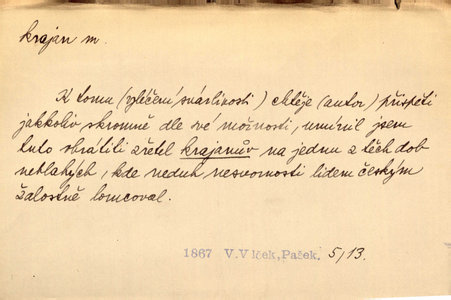 krajan m.
K tomu (vyléčení svárlivosti) chtěje (autor) přispěti
jakkoliv skromně dle své možnosti, umínil jsem
tuto obrátiti zřetel krajanův na jednu z těch dob
neblahých, kde neduh nesvornosti lidem českým
žalostně lomcoval.
1867 V.Vlček, Pašek. 5/13.